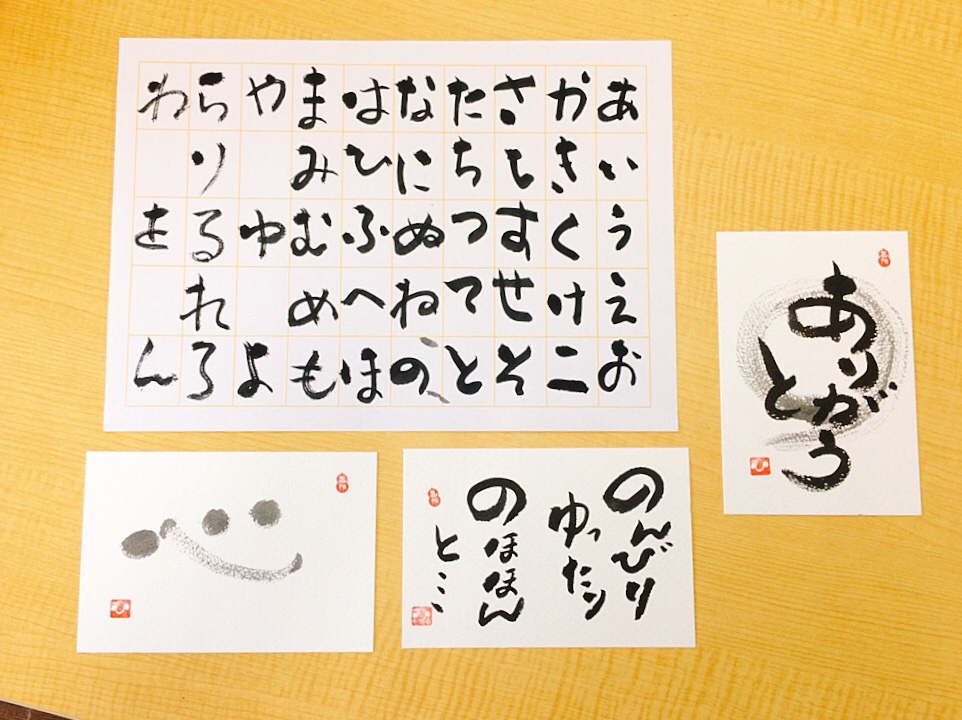 あいうえお
かきくけこ
さしすせそ
たちつてと
なにぬねの
はひふへほ
まみむめも
やゆよ
らりるれろ
わをん
ありがとう
のんびり
ゆったり
のほほん
と…
心